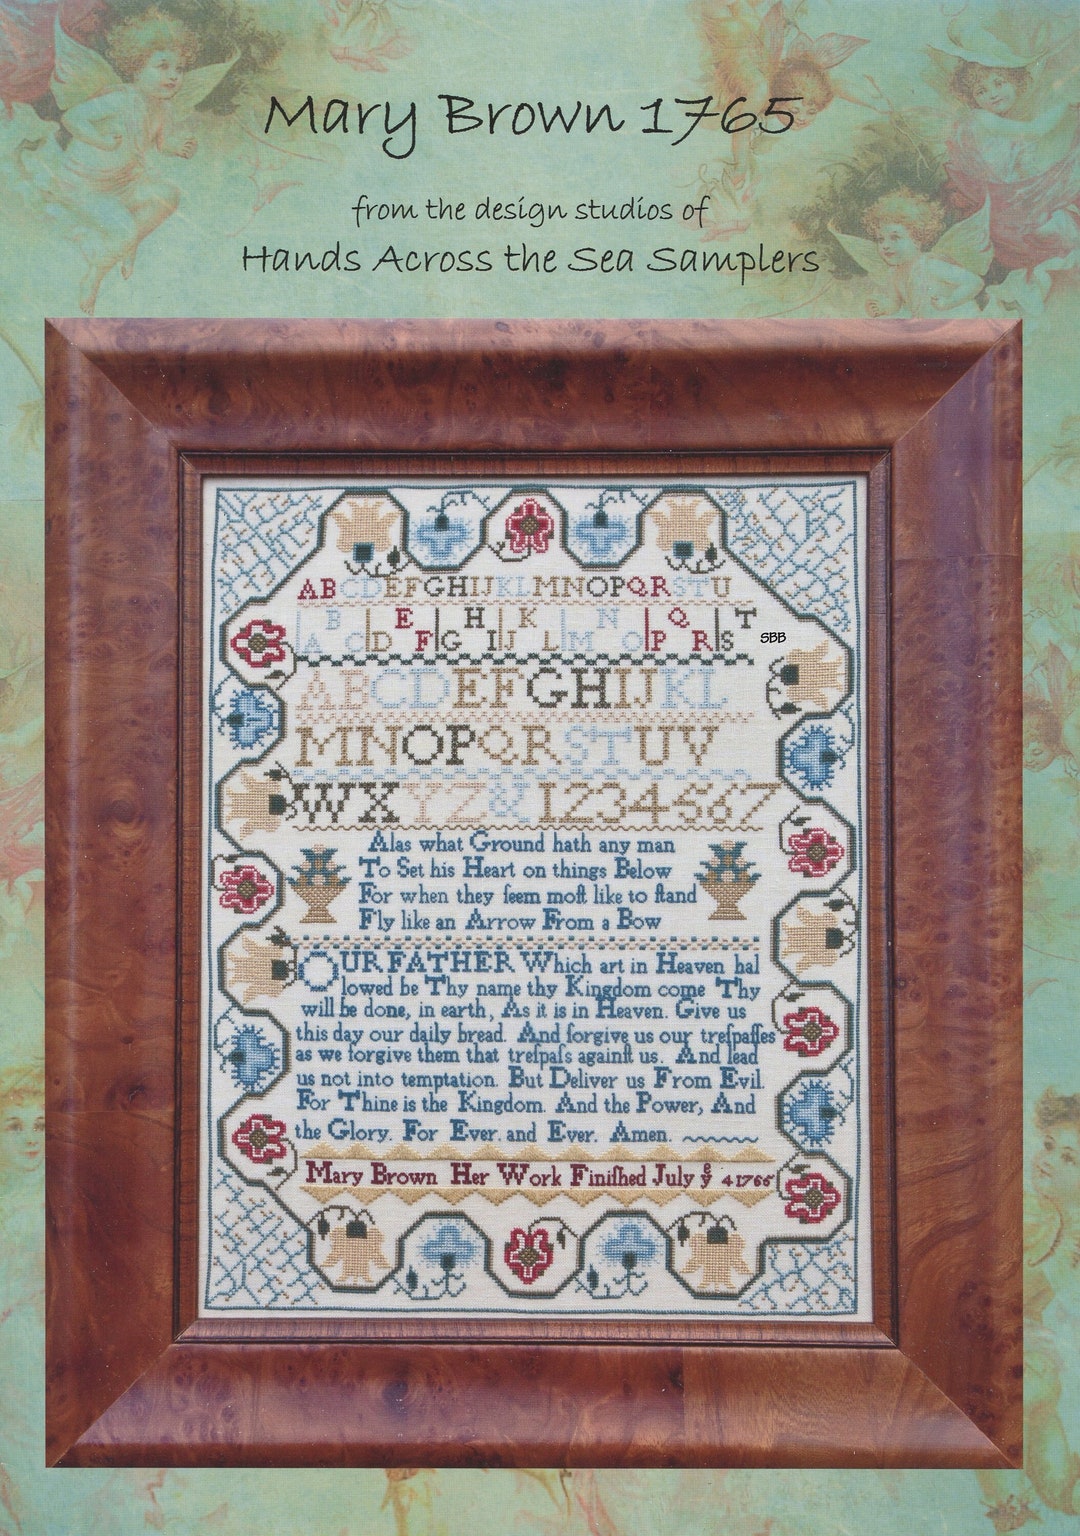 Mary Brown 1765
from the design studios of
Hands Across the Sea Samplers
ABCDEFGHIJKLMNOPQRSTU
ABCDEFGHIJKLMNOPQRST
SBB
ABCDEFGHIJKL
MNOPQRSTUV
WXYZ&1234567
Alas what Ground hath any man
To Set his Heart on things Below
For when they ſeem moſt like to ſtand
Fly like an Arrow From a Bow
OUR FATHER Which art in Heaven hal
lowed be Thy name thy Kingdom come Thy
will be done, in earth, As it is in Heaven. Give us
this day our daily bread. And forgive us our treſpaſſes
as we forgive them that treſpaſs againſt us. And lead
us not into temptation. But Deliver us From Evil.
For Thine is the Kingdom. And the Power, And
the Glory. For Ever. and Ever. Amen.
Mary Brown Her Work Finiſhed July yͤ 4 1765